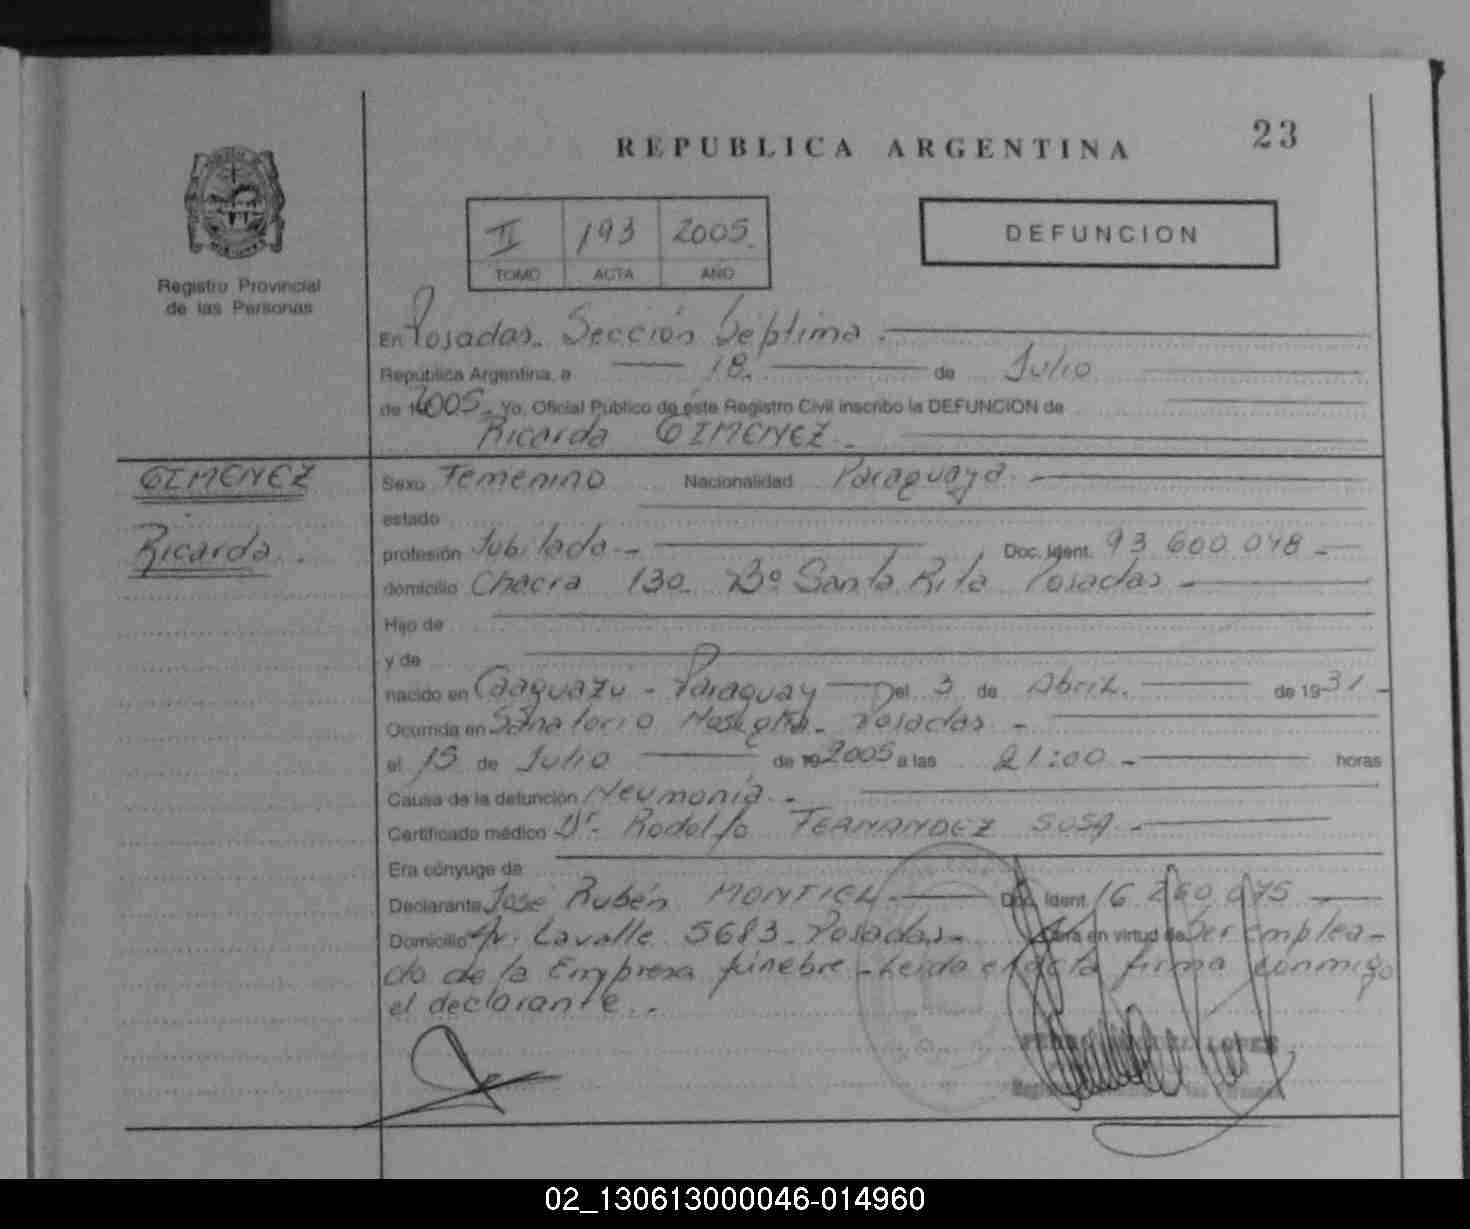 23
REPUBLICA ARGENTINA
II 193 2005
TOMO ACTA AÑO
DEFUNCION
Registro Provincial
de las Personas
En Posadas. Sección Séptima.
República Argentina, a 18. de Julio
de 2005. Yo, Oficial Público de este Registro Civil inscribo la DEFUNCION de
Ricarda GIMENEZ.
GIMENEZ
Ricarda.
Sexo Femenino Nacionalidad Paraguaya.
estado
profesión Jubilada.- Doc. Ident. 93.600.048-
domicilio Chacra 130. Bº Santa Rita Posadas-
Hijo de
y de
nacido en Caaguazu - Paraguay el 3 de Abril. de 1931-
Ocurrida en Sanatorio Posadas-
el 15 de Julio de 192005 a las 21:00- horas
Causa de la defunción Neumonia.-
Certificado médico Dr. Rodolfo FERNANDEZ SOSA.-
Era cónyuge de
Declarante José Rubén MONTIEL- Doc. Ident. 16.260.075
Domicilio Av. Lavalle 5683-Posadas- en virtud de Ser emplea-
do de la Empresa fúnebre-Leida el acta firma conmigo
el declarante..
LOPEZ
02_130613000046-014960